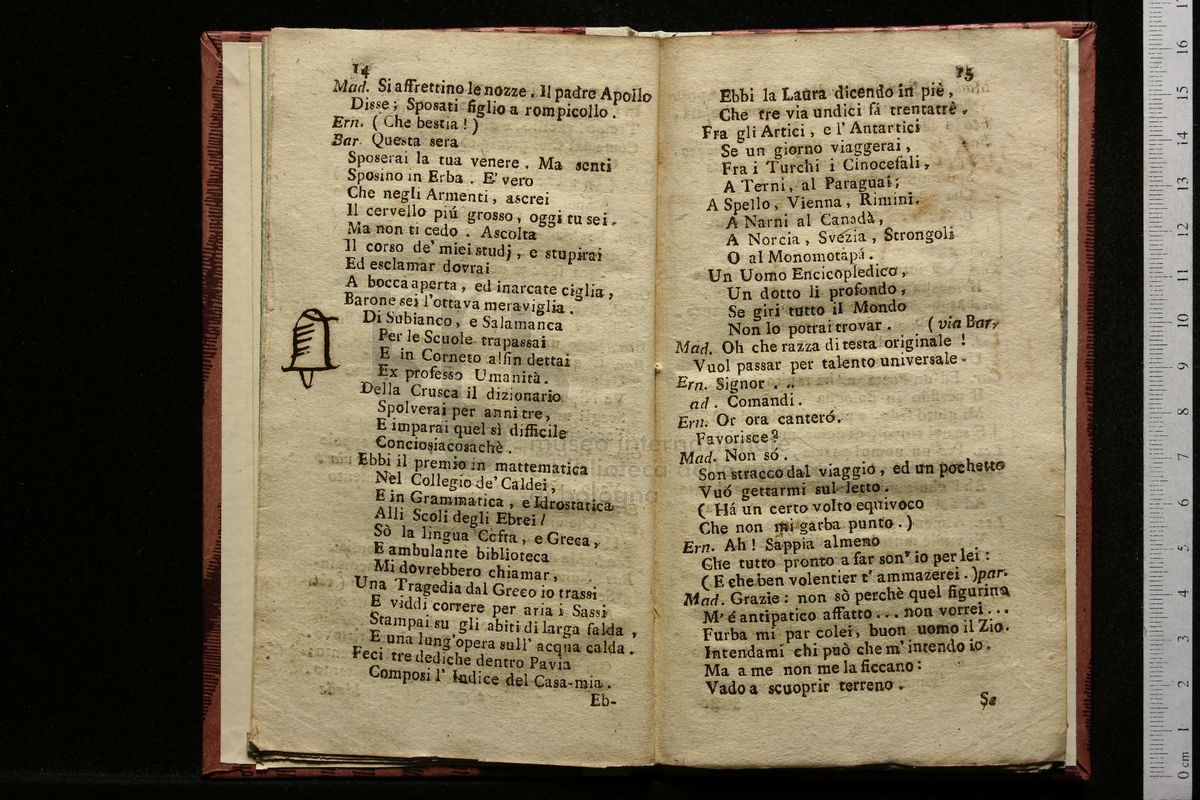 14
Mad. Si affrettino le nozze. Il padre Apollo
Disse; Sposati figlio a rompicollo.
Ern. ( Che bestia! )
Bar. Questa sera
Sposerai la tua venere. Ma senti
Sposino in Erba. E' vero
Che negli Armenti, ascrei
Il cervello piú grosso, oggi tu sei.
Ma non ti cedo. Ascolta
Il corso de' miei studj, e stupirai
Ed esclamar dovrai
A bocca aperta, ed inarcate ciglia,
Barone sei l'ottava meraviglia.
Di Subianco, e Salamanca
Per le Scuole trapassai
E in Corneto alfin dettai
Ex professo Umanità.
Della Crusca il dizionario
Spolverai per anni tre,
E imparai quel sì difficile
Conciosiacosachè.
Ebbi il premio in mattematica
Nel Collegio de' Caldei,
E in Grammatica, e Idrostatica
Alli Scoli degli Ebrei /
Sò la lingua Cofta, e Greca,
E ambulante biblioteca
Mi dovrebbero chiamar,
Una Tragedia dal Greco io trassi
E viddi correre per aria i Sassi
Stampai su gli abiti di larga falda,
E una lung'opera sull' acqua calda.
Feci tre dediche dentro Pavia
Composi l' Indice del Casa-mia.
Eb-
15
Ebbi la Laura dicendo in piè,
Che tre via undici fá trentatrè.
Fra gli Artici, e l' Antartici
Se un giorno viaggerai,
Fra i Turchi i Cinocefali,
A Terni, al Paraguai;
A Spello, Vienna, Rimini.
A Narni al Canadà,
A Norcia, Svezia, Strongoli
O al Monomotápá.
Un Uomo Encicopledico,
Un dotto li profondo,
Se giri tutto il Mondo
Non lo potrai trovar. (via Bar.
Mad. Oh che razza di testa originale!
Vuol passar per talento universale.
Ern. Signor . ..
ad. Comandi.
Ern. Or ora canteró.
Favorisce?
Mad. Non só.
Son stracco dal viaggio, ed un pochetto
Vuó gettarmi sul letto.
( Há un certo volto equivoco
Che non mi garba punto. )
Ern. Ah! Sappia almeno
Che tutto pronto a far son' io per lei:
( E che ben volentier t' ammazerei. )par.
Mad. Grazie: non sò perchè quel figurino
M' é antipatico affatto... non vorrei...
Furba mi par colei, buon uomo il Zio.
Intendami chi può che m' intendo io.
Ma a me non me la ficcano:
Vado a scuoprir terreno.
Se